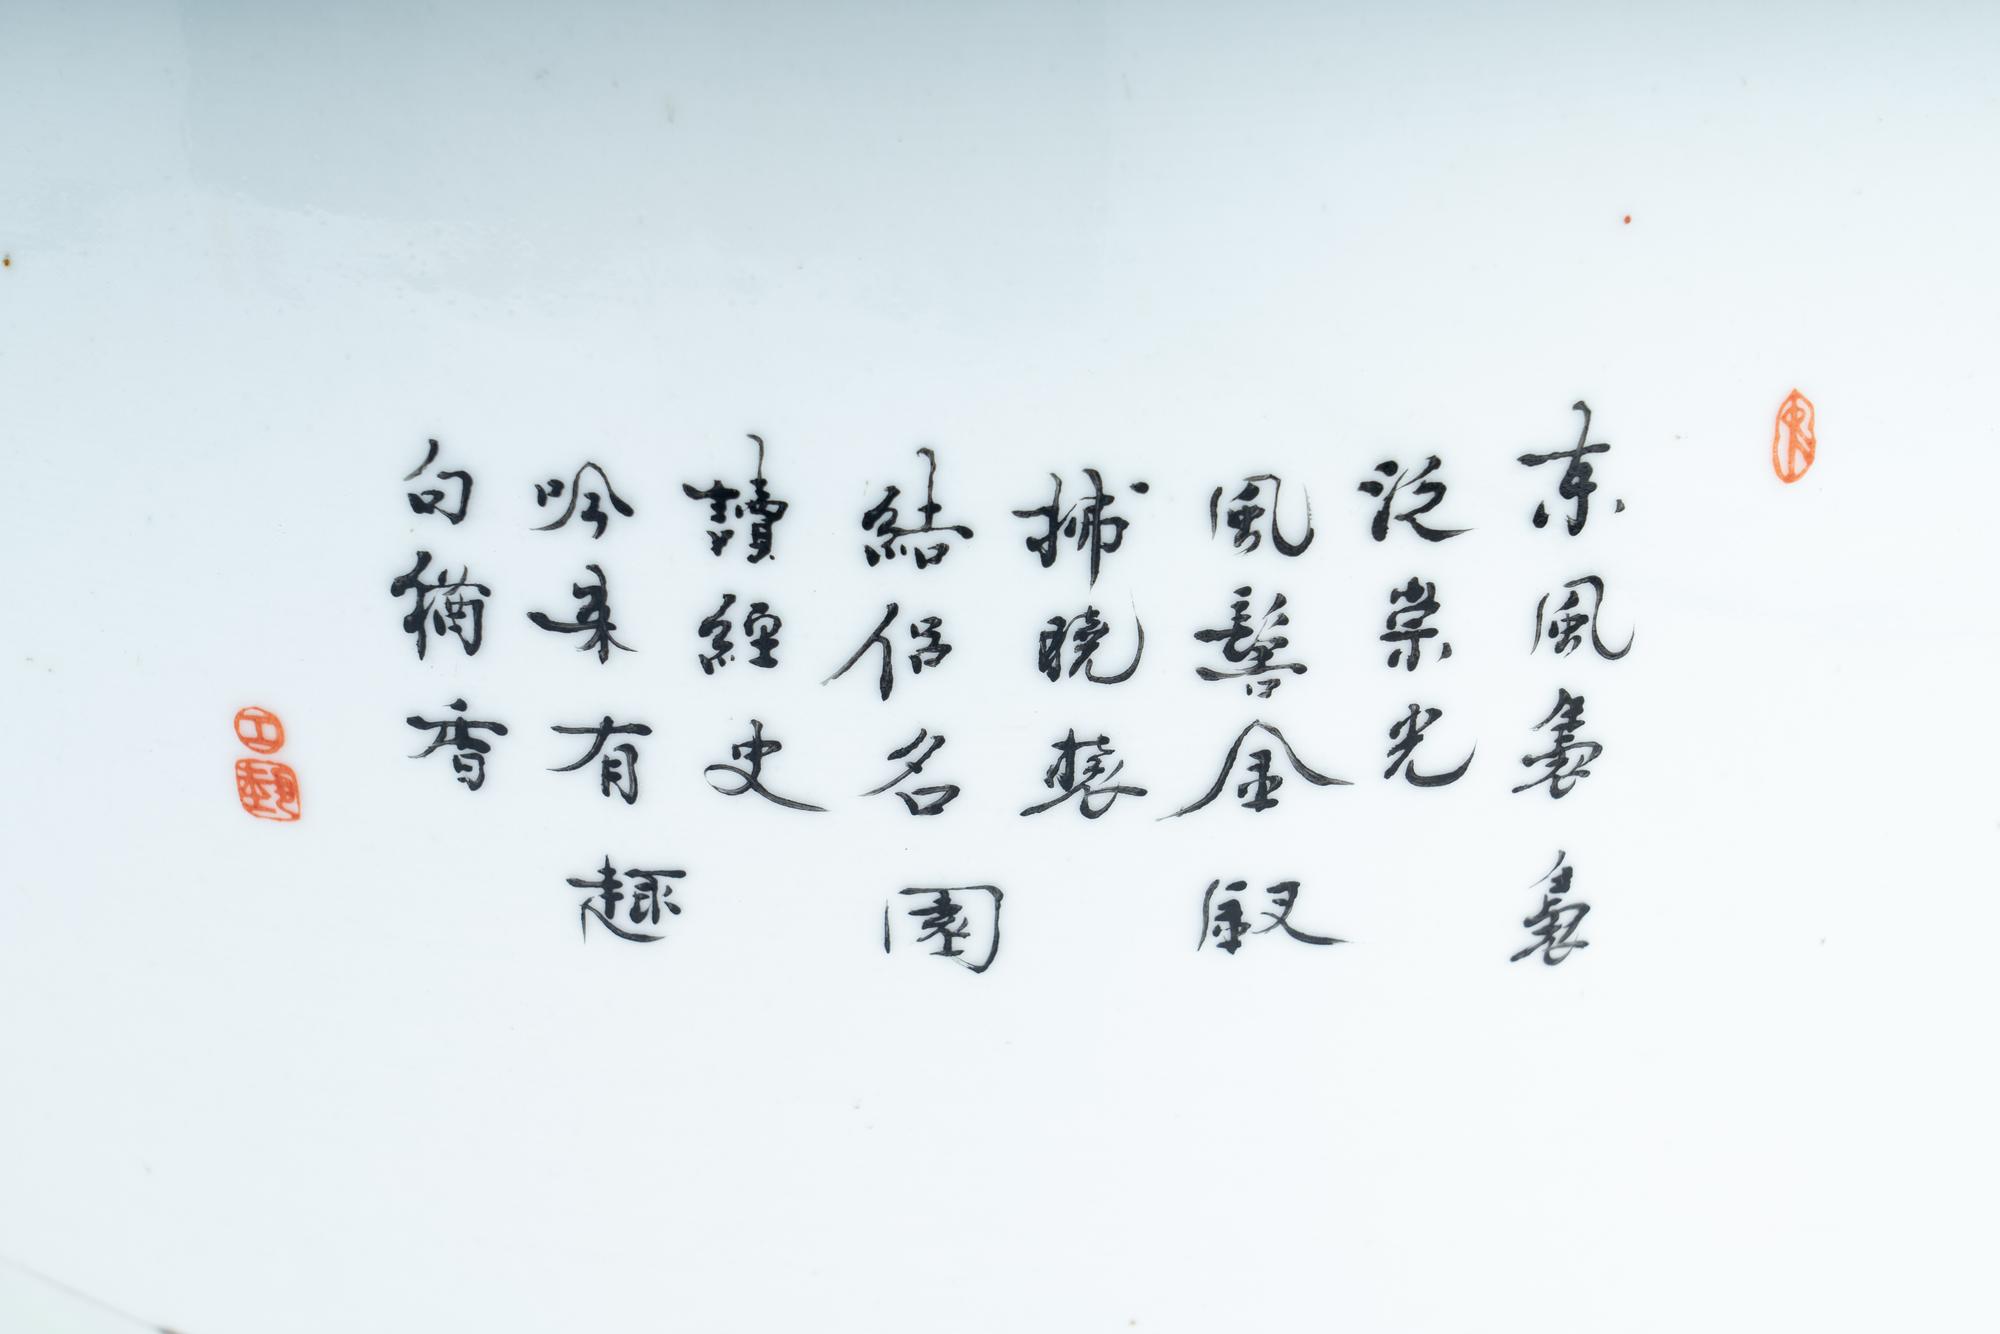 東風裊裊
泛崇光
風髻金釵
捕曉裝
結侶名園
讀經史
吟来有趣
句猶香